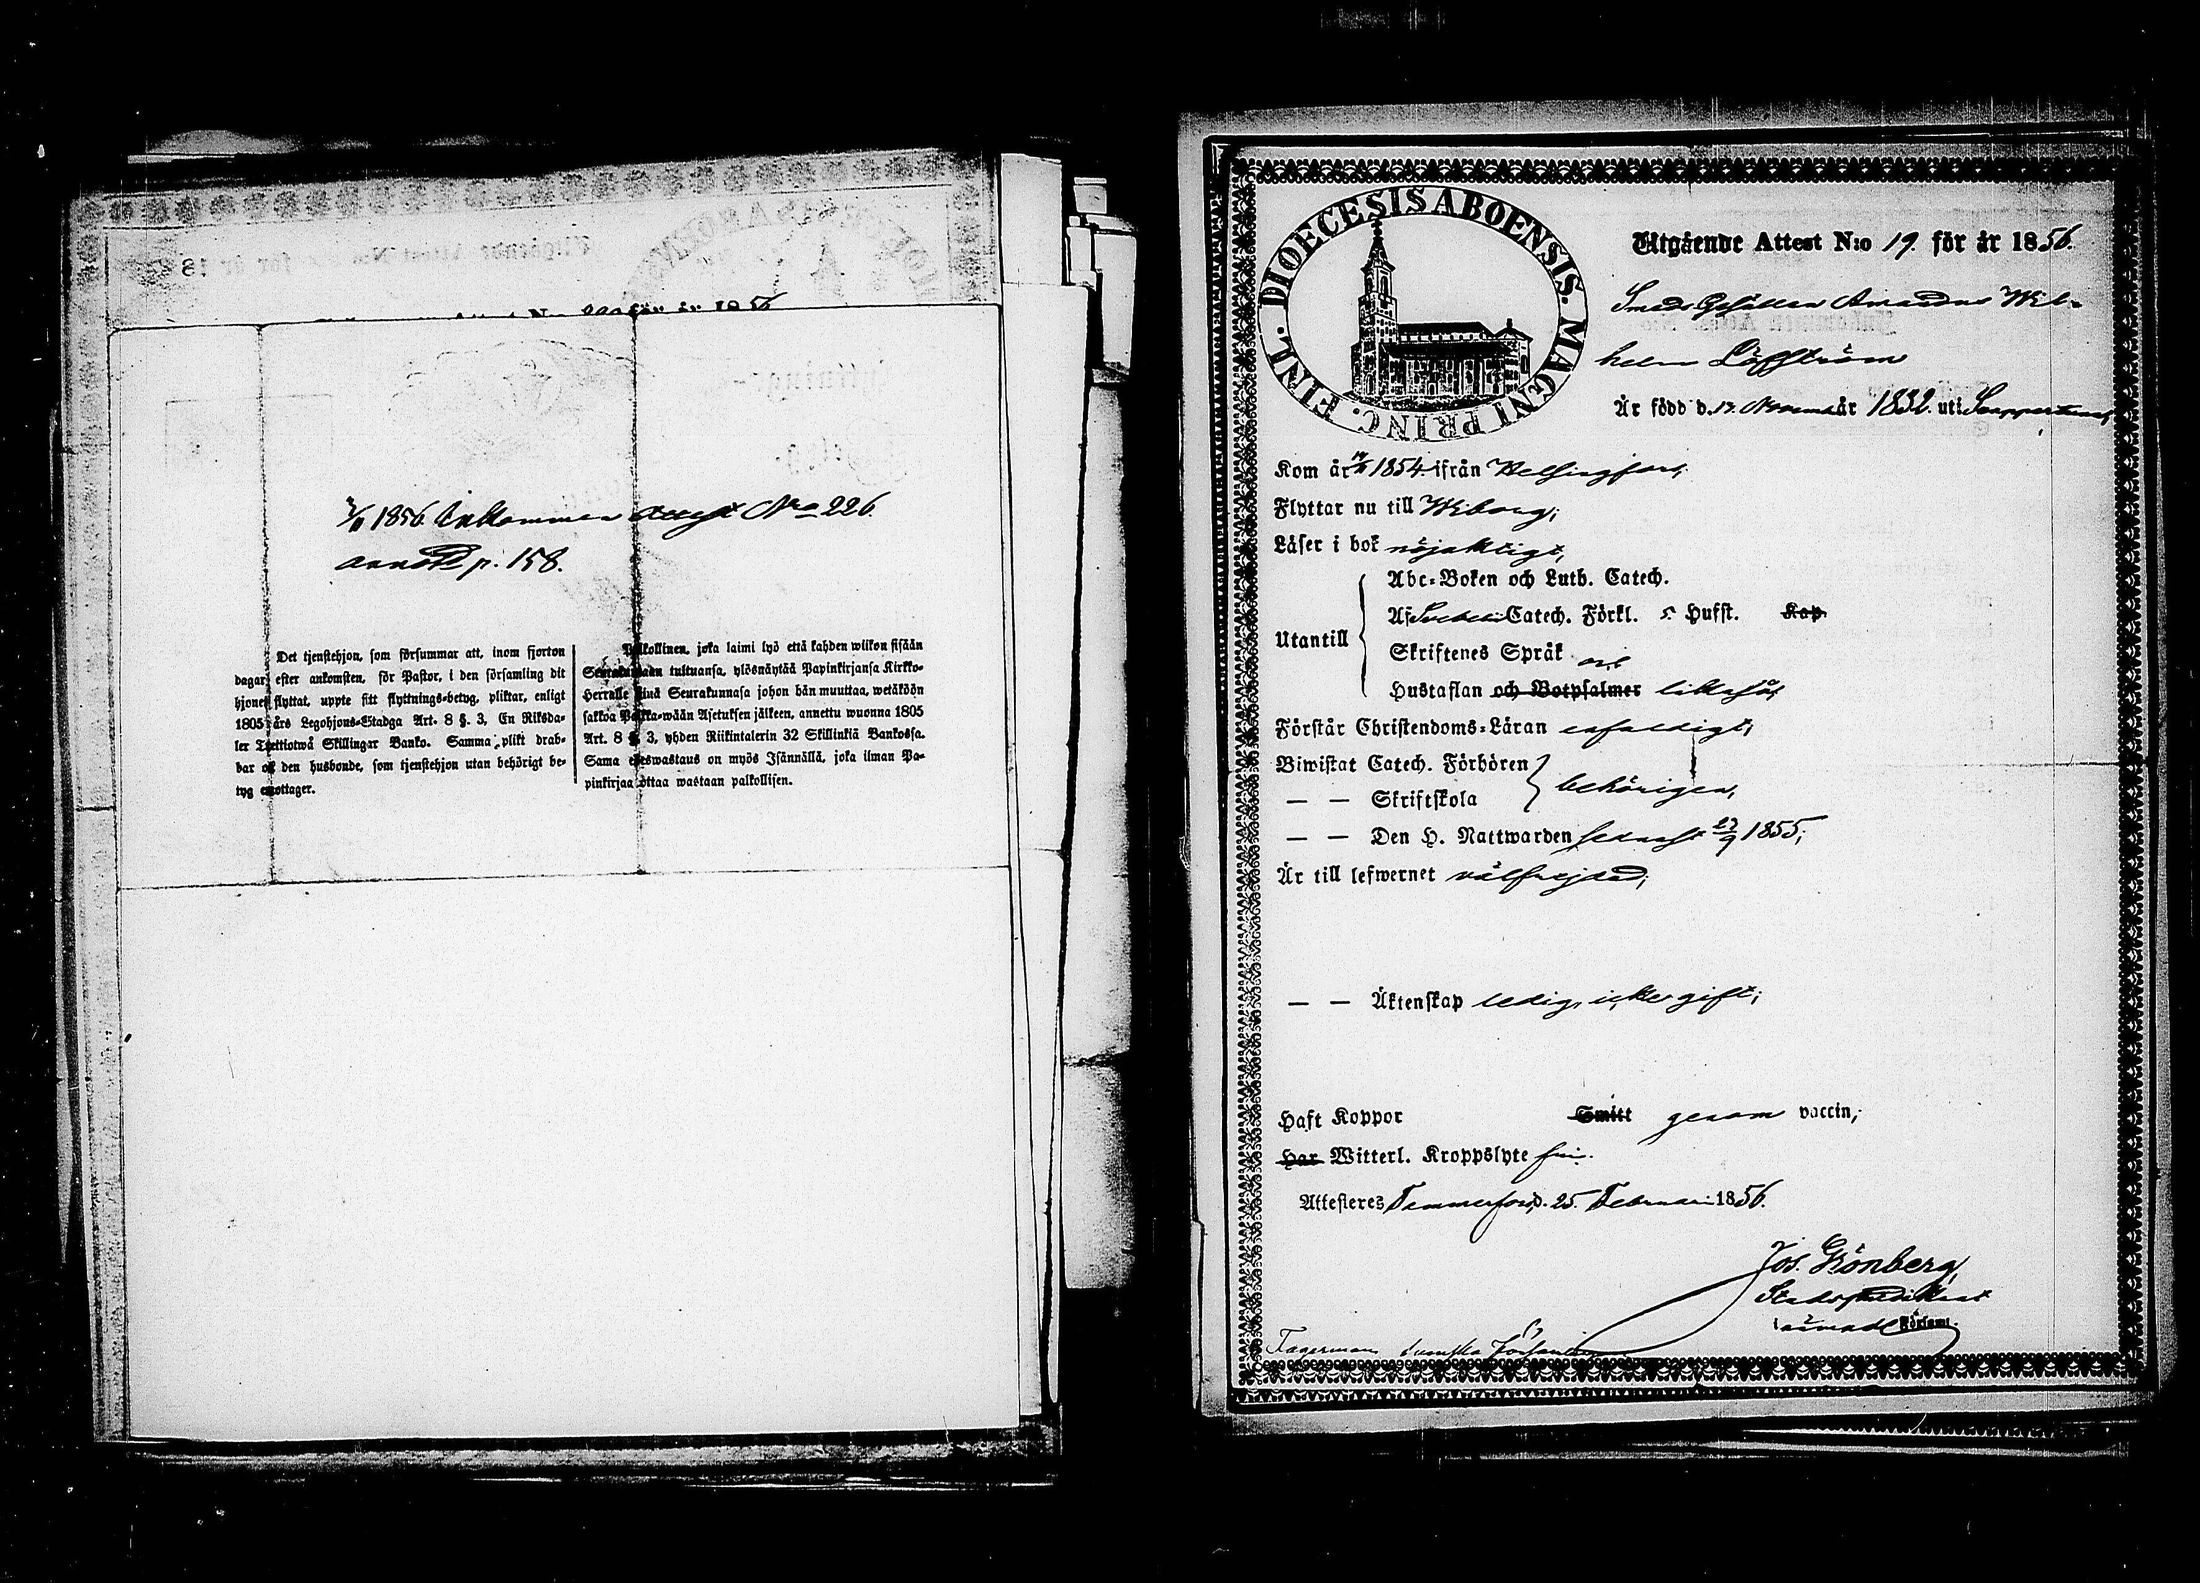 för år 1856
3/11 1856 Inkommen Attest No 226.
annoterd p. 158.
Det tjenstehjon, som försummar att, inom fjorton
dagar efter ankomsten, för Pastor, i den församling dit
hjonet flyttat, uppte sitt flyttnings-betyg, pliktar, enligt
1805 års Legohjons-Stadga Art. 8 §. 3, En Riksda-
ler Trettiotwå Skillingar Banko. Samma plikt drab-
bar ock den husbonde, som tjenstehjon utan behörigt be-
tyg emottager.
Palkollinen, joka laimi lyö että kahden wiikon sisään
Seurakundaan tultuansa, ylösnäytää Papinkirjansa Kirkko-
Herralle siinä Seurakunnasa johon hän muuttaa, wetäköön
sakkoa Palkka-wään Asetuksen jälkeen, annettu wuonna 1805
Art. 8 §. 3, yhden Riikintalerin 32 Skillinkiä Bankossa.
Sama edeswastaus on myös Isännällä, joka ilman Pa-
pinkirjaa ottaa wastaan palkollisen.
DIOECESIS ABOENSIS. MAGNI PRINC. FINL.
Utgående Attest N:o 19. för år 1856.
Smeds Gesällen Amandus Wil-
helm Löfström
Är född d. 17. Novem. år 1832. uti
Kom år 1854 ifrån Helsingfors;
Flyttar nu till Wiborg;
Läser i bok nöjaktigt,
Utantill
Abc-Boken och Luth. Catech.
Af Svebelii Catech. Förkl. 5. Hufst. Kap.
Skriftenes Språk och
Hustaflan och Botpsalmer likaså,
Förstår Christendoms-Läran enfaldigt;
Biwistat Catech. Förhören
— — Skriftskola behörigen,
— — Den H. Nattwarden senast 23/9 1855;
Är till lefwernet välfrejdad;
— — Äktenskap ledig, icke gift;
Haft Koppor Smitt genom vaccin;
Har Witterl. Kroppslyte fri.
Attesteres Tammerfors, d. 25. Februari 1856.
Jos. Grönberg,
Stadspredikant
Församl.
Fagerman Svenska Församlingen